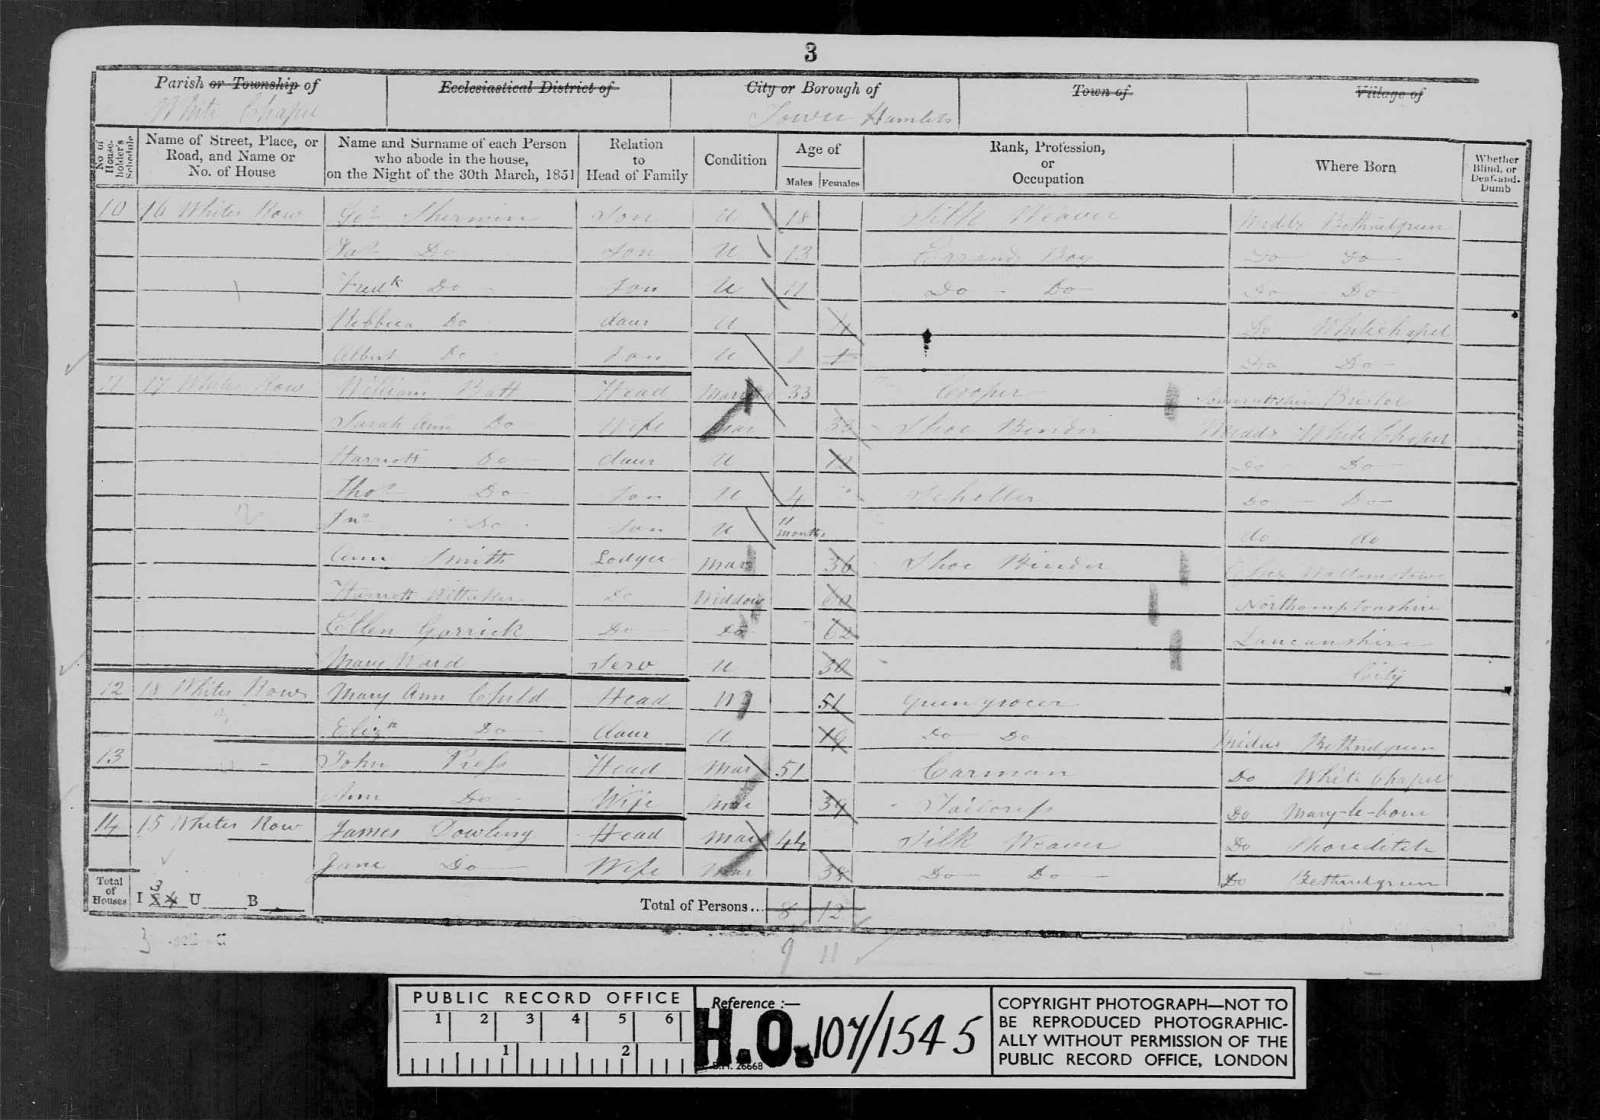 3
Parish or Township of
Ecclesiastical District of
City or Borough of
Town of
Village of
White Chapel
Tower Hamlets
No. of House-holder's Schedule
Name of Street, Place, or Road, and Name or No. of House
Name and Surname of each Person who abode in the house, on the Night of the 30th March, 1851
Relation to Head of Family
Condition
Age of
Males
Females
Rank, Profession, or Occupation
Where Born
Whether Blind, or Deaf-and-Dumb
10 16 Whites Row Geo Sherwin Son U 18 Silk Weaver Middx Bethnalgreen
Do Son U 13 Errand Boy Do Do
Fredk Do Son U 11 Do Do Do Do
Rebbecca Do daur U 4 Do Whitechapel
Albert Do Son U 1 Do Do
11 17 Whites Row William Batt Head Mar 33 Cooper Somersetshire Bristol
Sarah Ann Do Wife Mar Shoe Binder Midds White Chapel
Harriett Do daur U Do Do
Thos Do Son U 4 Scholler Do Do
Jno Do Son U 11 months do do
Ann Smith Lodger Mar 36 Shoe Binder
Harriett Do Widdow 60 Northamptonshire
Ellen Garrick Do Do 62 Lancanshire
Mary Ward Serv U 30 City
12 18 Whites Row Mary Ann Child Head W 51 Greengrocer
Elizh Do daur U 19 Do Do Middx Bethnalgreen
13 John Press Head Mar 51 Carman Do White Chapel
Ann Do Wife Mar 39 Tailoress Do Mary-le-bone
14 15 Whites Row James Dowling Head Mar 44 Silk Weaver Do Shoreditch
Jane Do Wife Mar 38 Do Do Do Bethnalgreen
Total of Houses I 3 U B
Total of Persons... 8 12
3
9 11
PUBLIC RECORD OFFICE
1 2 3 4 5 6
1 2
Reference :—
H.O. 107/1545
COPYRIGHT PHOTOGRAPH—NOT TO
BE REPRODUCED PHOTOGRAPHIC-
ALLY WITHOUT PERMISSION OF THE
PUBLIC RECORD OFFICE, LONDON